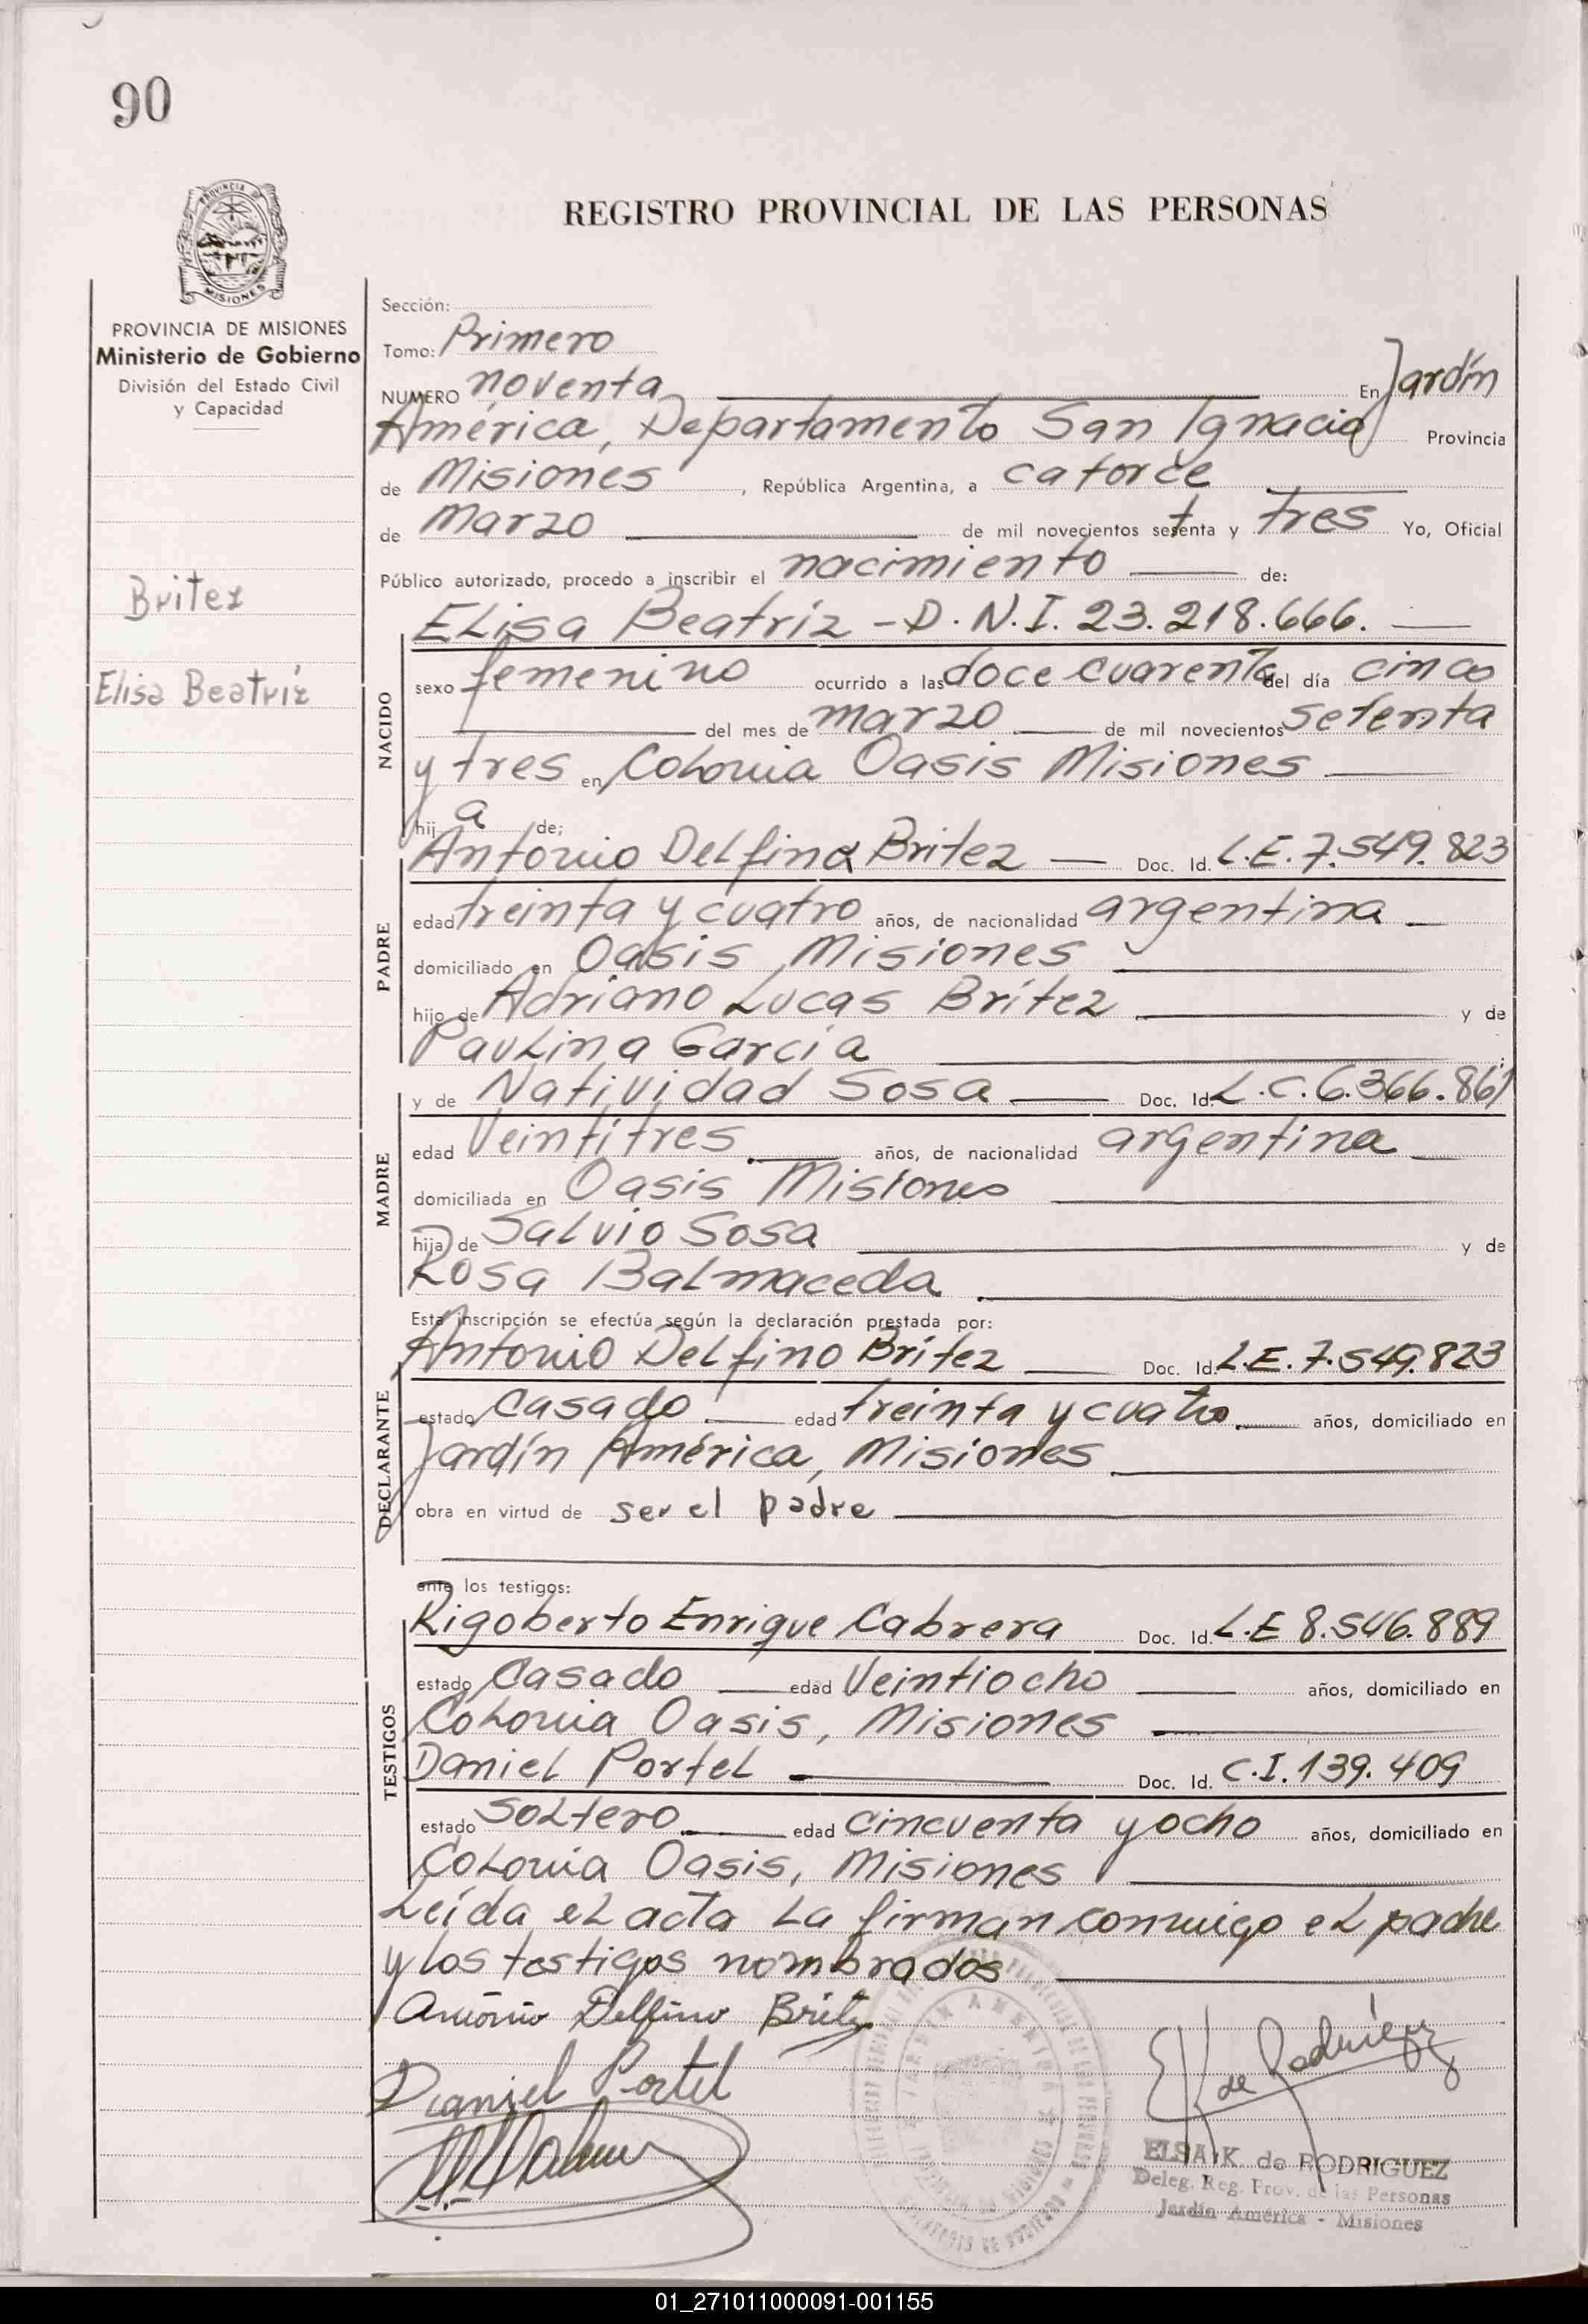 90
PROVINCIA DE
MISIONES
REGISTRO PROVINCIAL DE LAS PERSONAS
PROVINCIA DE MISIONES
Ministerio de Gobierno
División del Estado Civil
y Capacidad
Britez
Elisa Beatríz
Sección:
Tomo: Primero
NUMERO noventa En Jardín
América, Departamento San Ignacio Provincia
de Misiones, República Argentina, a catorce
de Marzo de mil novecientos setenta y tres Yo, Oficial
Público autorizado, procedo a inscribir el nacimiento de:
ELisa Beatríz - D.N.I. 23.218.666.
NACIDO
sexo femenino ocurrido a las doce cuarenta del día cinco
del mes de marzo de mil novecientos setenta
y tres en Colonia Oasis Misiones
hij a de;
Antonio Delfino Britez Doc. Id. L.E. 7.549.823
PADRE
edad treinta y cuatro años, de nacionalidad argentina
domiciliado en Oasis Misiones
hijo de Adriano Lucas Brítez y de
Paulina García
MADRE
y de Natividad Sosa Doc. Id. L.C. 6.366.861
edad Veintitres años, de nacionalidad argentina
domiciliada en Oasis Misiones
hija de Salvio Sosa y de
Rosa Balmaceda
Esta inscripción se efectúa según la declaración prestada por:
DECLARANTE
Antonio Delfino Brítez Doc. Id. L.E. 7.549.823
estado Casado edad treinta y cuatro años, domiciliado en
Jardín América, Misiones
obra en virtud de ser el padre
ante los testigos:
TESTIGOS
Rigoberto Enrique Cabrera Doc. Id. L.E 8.546.889
estado Casado edad Veintiocho años, domiciliado en
Colonia Oasis, Misiones
Daniel Portel Doc. Id. C.I. 139.409
estado Soltero edad cincuenta y ocho años, domiciliado en
Colonia Oasis, Misiones
Leída el acta la firman conmigo el padre
y los testigos nombrados
Antonio Delfino Britez
Daniel Portel
EK de Rodríguez
ELSA K. de RODRIGUEZ
Deleg. Reg. Prov. de las Personas
Jardín América - Misiones
01_271011000091-001155